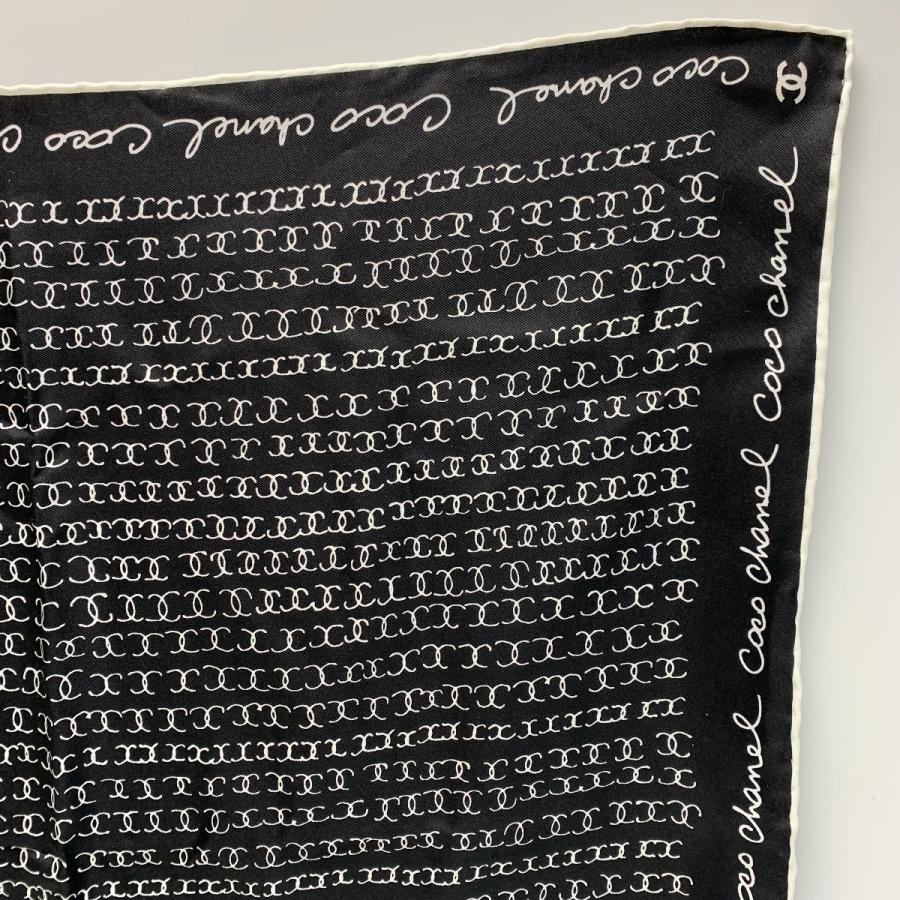 Coco chanel Coco chanel Coco
Coco chanel Coco chanel Coco chanel